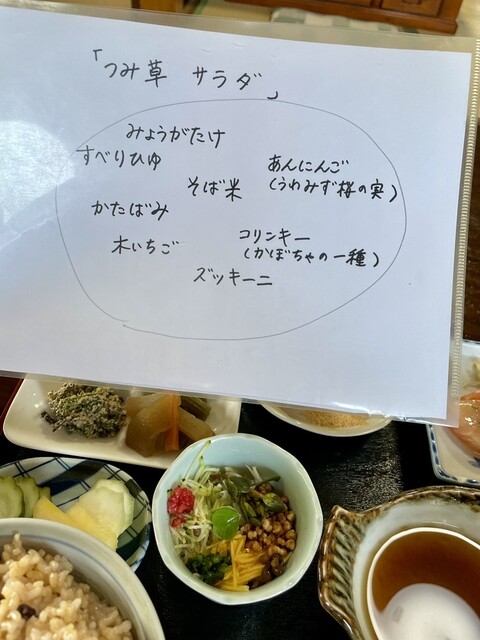 「つみ草 サラダ」
みょうがたけ
すべりひゆ
あんにんご
(うわみず桜の実)
そば米
かたばみ
コリンキー
(かぼちゃの一種)
木いちご
ズッキーニ